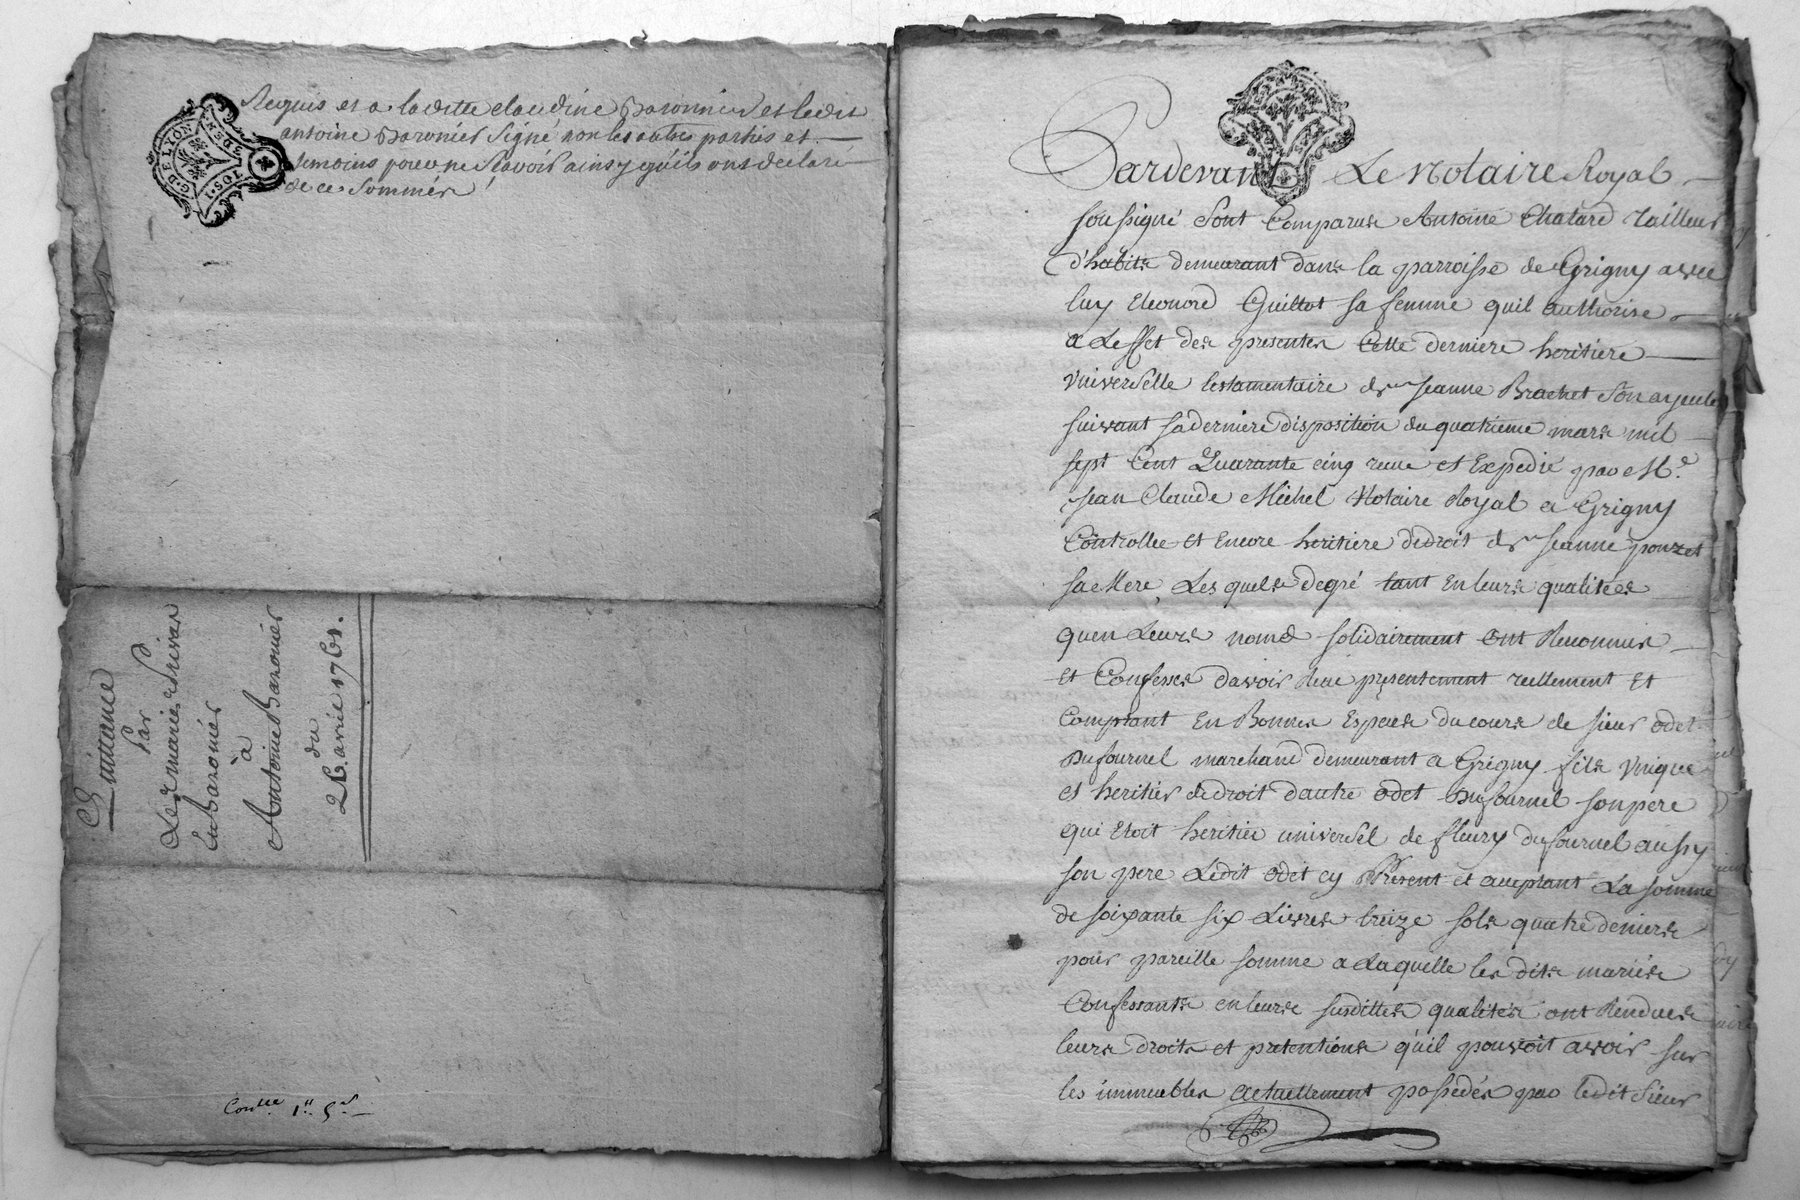 requis et a laditte claudine Baronnier et ledit
antoine Baronier signé non les autres parties et
temoins pour ne scavoir ainsy qu'ils ont declaré
de ce sommés
G. DE LYON
Quittance
Par
Les mariés
Baronier
à
Antoine Baronier
du
26 avril 1761.
Conlle 1ll 5s
Pardevant Le Notaire Royal
soussigné sont Comparus Antoine Chatard tailleur
d'habits demeurant dans la parroisse de Grigny avec
luy Eleonord Guillot sa femme quil authorise
a Leffet des presentes Cette derniere heritiere
Universelle testamentaire de Jeanne Brachet son ayeule
suivant sa derniere disposition du quatrieme mars mil
sept Cent Quarante cinq recue et Expedié par Me.
Jean Claude Michel Notaire Royal a Grigny
Controllee et Encore heritiere de droit de Jeanne pouzet
sa Mere, Lesquels de gré tant en leurs qualitées
quen Leurs noms solidairement ont Reconnus
et Confessés davoir Recu presentement reellement et
Comptant En Bonnes Especes du cours de sieur odet
Dufournel marchand demeurant a Grigny fils Unique
et heritier de droit dautre odet Dufournel son pere
qui Etoit heritier universel de fleury dufournel aussy
son pere Ledit odet cy Present et acceptant La somme
de soixante six Livres treize sols quatre deniers
pour pareille somme a Laquelle les dits mariés
Confessants en leurs susdittes qualités ont Rendues
leurs droits et pretentions qu'il pouvoit avoir sur
les immeubles actuellement possedés par ledit Sieur